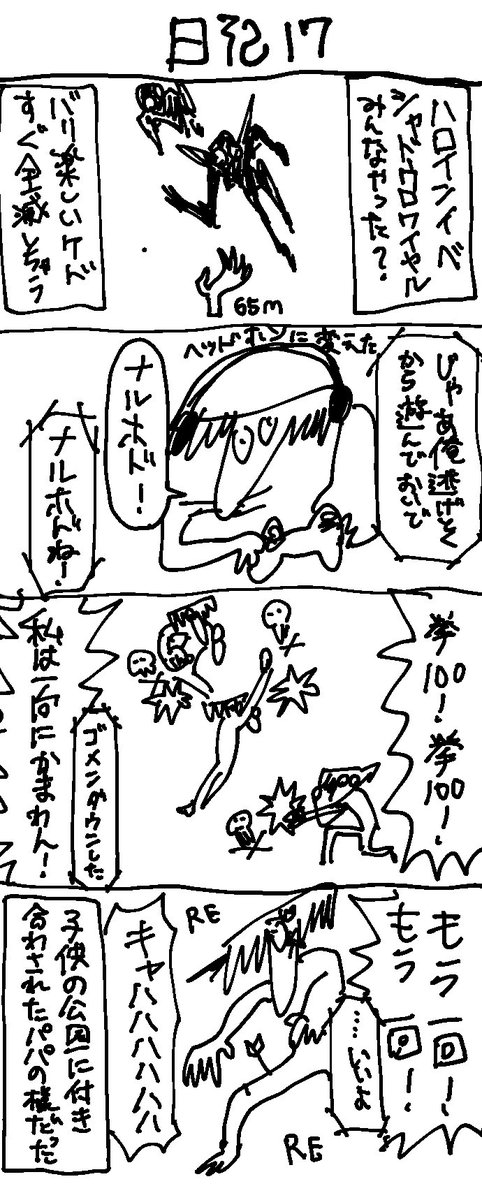 日記17
ハロインイベ
シャドウロワイヤル
みんなやった?
65m
バリ楽しいケド
すぐ全滅しちゃう
じゃあ俺逃げとく
から遊んでおいで
ヘッドホンに変えた
ナルホド!
ナルホドね!
拳100!拳100!
ゴメンダウンした
私は一向にかまわん!
もう一回!
もう一回!
……いいよ
RE
RE
キャハハハハハハ
子供の公園に付き
合わされたパパの様だった